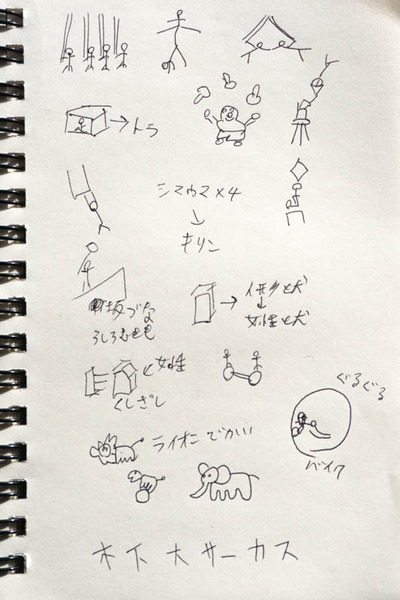 →トラ
シマウマ×4
↓
キリン
坂づな
うしろむきも
→人形と犬
↓
女性と犬
と女性
くしざし
ぐるぐる
バイク
ライオンでかい
木下大サーカス